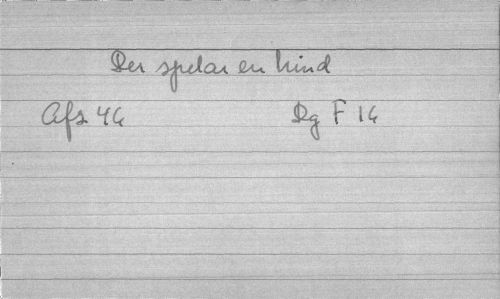 Der spelar en hind
Afz 46 Dg F 16